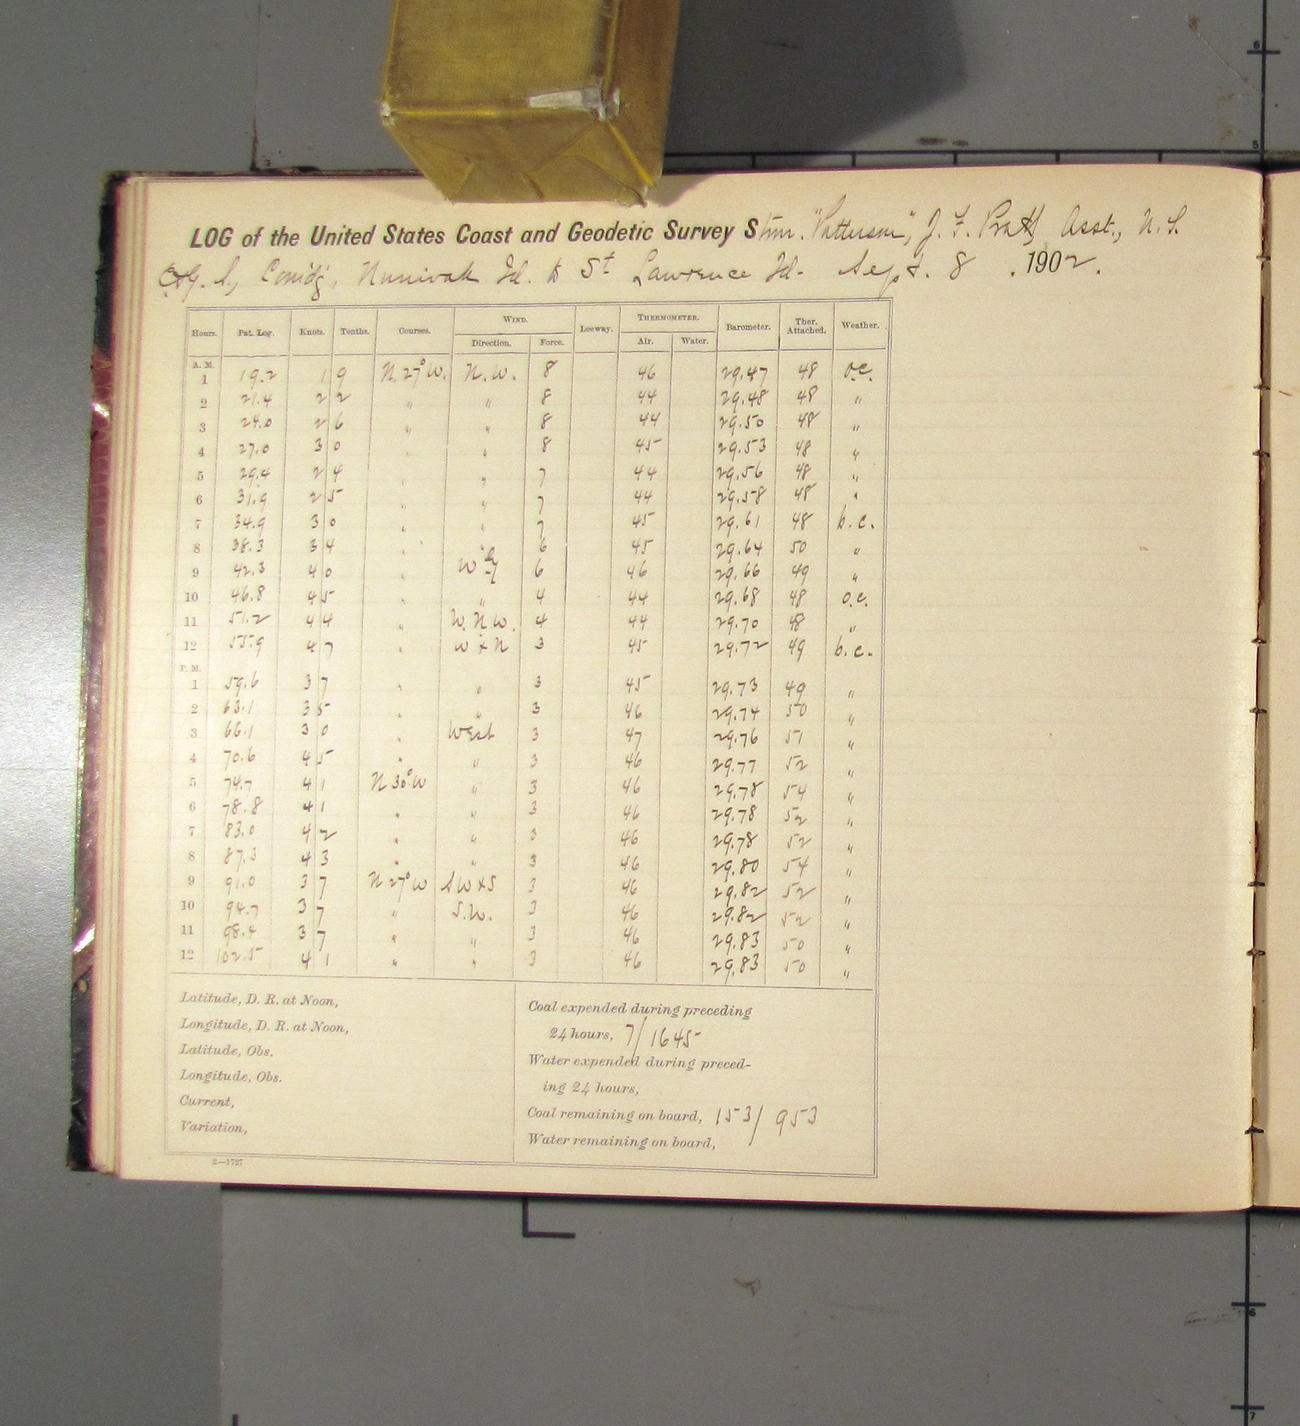 LOG of the United States Coast and Geodetic Survey Stmr. "Patterson", J. F. Pratt, Asst., U. S.
C. & G. S., Comdg, Nunivak Id. to St. Lawrence Id. Sept. 8, 1902.
Hours. Pat. Log. Knots. Tenths. Courses. WIND. Leeway. THERMOMETER. Barometer. Ther. Attached. Weather.
Direction. Force. Air. Water.
A. M.
1 19.2 1 9 N. 27° W. N. W. 8 46 29.47 48 o.c.
2 21.4 2 2 " " 8 44 29.48 48 "
3 24.0 2 6 " " 8 44 29.50 48 "
4 27.0 3 0 " " 8 45 29.53 48 "
5 29.4 2 4 " " 7 44 29.56 48 "
6 31.9 2 5 " " 7 44 29.58 48 "
7 34.9 3 0 " " 7 45 29.61 48 b.c.
8 38.3 3 4 " " 6 45 29.64 50 "
9 42.3 4 0 " W'ly 6 46 29.66 49 "
10 46.8 4 5 " " 4 44 29.68 48 o.c.
11 51.2 4 4 " W. N. W. 4 44 29.70 48 "
12 55.9 4 7 " W x N 3 45 29.72 49 b.c.
P. M.
1 59.6 3 7 " " 3 45 29.73 49 "
2 63.1 3 5 " " 3 46 29.74 50 "
3 66.1 3 0 " West 3 47 29.76 51 "
4 70.6 4 5 " " 3 46 29.77 52 "
5 74.7 4 1 N 30° W " 3 46 29.78 54 "
6 78.8 4 1 " " 3 46 29.78 52 "
7 83.0 4 2 " " 3 46 29.78 52 "
8 87.3 4 3 " " 3 46 29.80 54 "
9 91.0 3 7 N 27° W SW x S 3 46 29.82 52 "
10 94.7 3 7 " S.W. 3 46 29.82 52 "
11 98.4 3 7 " " 3 46 29.83 50 "
12 102.5 4 1 " " 3 46 29.83 50 "
Latitude, D. R. at Noon,
Longitude, D. R. at Noon,
Latitude, Obs.
Longitude, Obs.
Current,
Variation,
Coal expended during preceding
24 hours, 7/1645
Water expended during preced-
ing 24 hours,
Coal remaining on board, 153/953
Water remaining on board,
2—1727
3
6
5
6
7